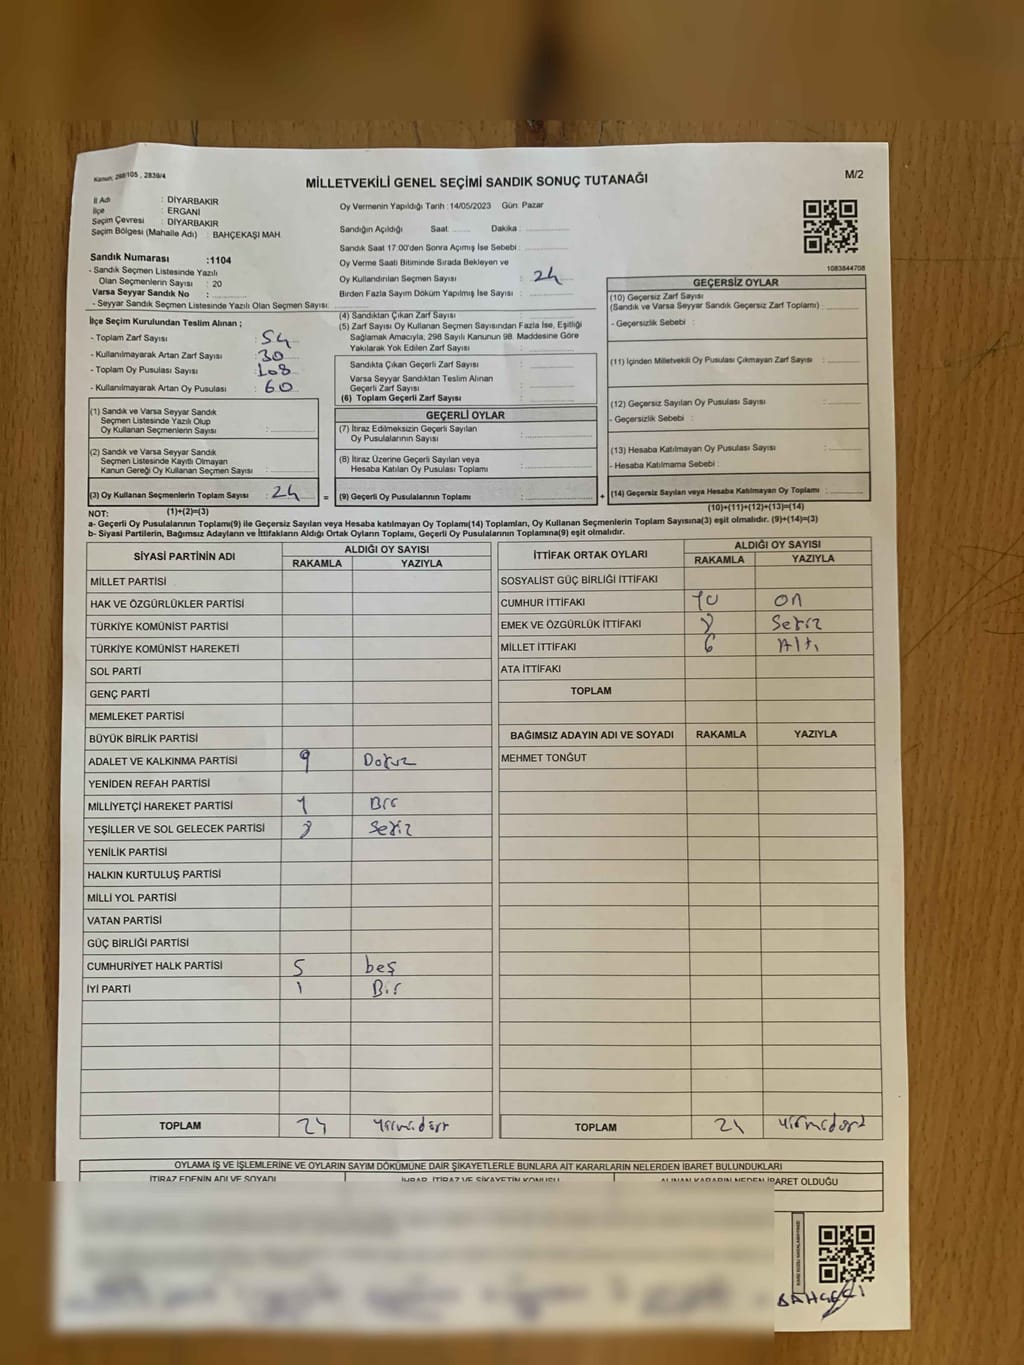 Kanun: 298/105 , 2839/4
MİLLETVEKİLİ GENEL SEÇİMİ SANDIK SONUÇ TUTANAĞI
M/2
İl Adı : DİYARBAKIR
İlçe : ERGANİ
Seçim Çevresi : DİYARBAKIR
Seçim Bölgesi (Mahalle Adı) : BAHÇEKAŞI MAH.
Sandık Numarası :1104
- Sandık Seçmen Listesinde Yazılı
Olan Seçmenlerin Sayısı : 20
Varsa Seyyar Sandık No :
- Seyyar Sandık Seçmen Listesinde Yazılı Olan Seçmen Sayısı:
Oy Vermenin Yapıldığı Tarih : 14/05/2023 Gün: Pazar
Sandığın Açıldığı Saat: Dakika :
Sandık Saat 17:00'den Sonra Açımış İse Sebebi :
Oy Verme Saati Bitiminde Sırada Bekleyen ve
Oy Kullandırılan Seçmen Sayısı : 24
Birden Fazla Sayım Döküm Yapılmış İse Sayısı :
1083844708
İlçe Seçim Kurulundan Teslim Alınan ;
- Toplam Zarf Sayısı : 54
- Kullanılmayarak Artan Zarf Sayısı : 30
- Toplam Oy Pusulası Sayısı : 108
- Kullanılmayarak Artan Oy Pusulası : 60
(1) Sandık ve Varsa Seyyar Sandık
Seçmen Listesinde Yazılı Olup
Oy Kullanan Seçmenlerin Sayısı :
(2) Sandık ve Varsa Seyyar Sandık
Seçmen Listesinde Kayıtlı Olmayan
Kanun Gereği Oy Kullanan Seçmen Sayısı :
(3) Oy Kullanan Seçmenlerin Toplam Sayısı : 24 =
(1)+(2)=(3)
(4) Sandıktan Çıkan Zarf Sayısı :
(5) Zarf Sayısı Oy Kullanan Seçmen Sayısından Fazla İse, Eşitliği
Sağlamak Amacıyla, 298 Sayılı Kanunun 98. Maddesine Göre
Yakılarak Yok Edilen Zarf Sayısı :
Sandıkta Çıkan Geçerli Zarf Sayısı :
Varsa Seyyar Sandıktan Teslim Alınan
Geçerli Zarf Sayısı :
(6) Toplam Geçerli Zarf Sayısı :
GEÇERLİ OYLAR
(7) İtiraz Edilmeksizin Geçerli Sayılan
Oy Pusulalarının Sayısı :
(8) İtiraz Üzerine Geçerli Sayılan veya
Hesaba Katılan Oy Pusulası Toplamı :
(9) Geçerli Oy Pusulalarının Toplamı : +
GEÇERSİZ OYLAR
(10) Geçersiz Zarf Sayısı
(Sandık ve Varsa Seyyar Sandık Geçersiz Zarf Toplamı) :
- Geçersizlik Sebebi :
(11) İçinden Milletvekili Oy Pusulası Çıkmayan Zarf Sayısı :
(12) Geçersiz Sayılan Oy Pusulası Sayısı :
- Geçersizlik Sebebi :
(13) Hesaba Katılmayan Oy Pusulası Sayısı :
- Hesaba Katılmama Sebebi :
(14) Geçersiz Sayılan veya Hesaba Katılmayan Oy Toplamı :
(10)+(11)+(12)+(13)=(14)
NOT:
a- Geçerli Oy Pusulalarının Toplamı(9) ile Geçersiz Sayılan veya Hesaba katılmayan Oy Toplamı(14) Toplamları, Oy Kullanan Seçmenlerin Toplam Sayısına(3) eşit olmalıdır. (9)+(14)=(3)
b- Siyasi Partilerin, Bağımsız Adayların ve İttifakların Aldığı Ortak Oyların Toplamı, Geçerli Oy Pusulalarının Toplamına(9) eşit olmalıdır.
SİYASİ PARTİNİN ADI ALDIĞI OY SAYISI
RAKAMLA YAZIYLA
MİLLET PARTİSİ
HAK VE ÖZGÜRLÜKLER PARTİSİ
TÜRKİYE KOMÜNİST PARTİSİ
TÜRKİYE KOMÜNİST HAREKETİ
SOL PARTİ
GENÇ PARTİ
MEMLEKET PARTİSİ
BÜYÜK BİRLİK PARTİSİ
ADALET VE KALKINMA PARTİSİ 9 Dokuz
YENİDEN REFAH PARTİSİ
MİLLİYETÇİ HAREKET PARTİSİ 1 Bir
YEŞİLLER VE SOL GELECEK PARTİSİ 8 Sekiz
YENİLİK PARTİSİ
HALKIN KURTULUŞ PARTİSİ
MİLLİ YOL PARTİSİ
VATAN PARTİSİ
GÜÇ BİRLİĞİ PARTİSİ
CUMHURİYET HALK PARTİSİ 5 beş
İYİ PARTİ 1 Bir
TOPLAM 24 yirmidört
İTTİFAK ORTAK OYLARI ALDIĞI OY SAYISI
RAKAMLA YAZIYLA
SOSYALİST GÜÇ BİRLİĞİ İTTİFAKI
CUMHUR İTTİFAKI 10 on
EMEK VE ÖZGÜRLÜK İTTİFAKI 8 Sekiz
MİLLET İTTİFAKI 6 Altı
ATA İTTİFAKI
TOPLAM
BAĞIMSIZ ADAYIN ADI VE SOYADI RAKAMLA YAZIYLA
MEHMET TONĞUT
TOPLAM 24 yirmidört
OYLAMA İŞ VE İŞLEMLERİNE VE OYLARIN SAYIM DÖKÜMÜNE DAİR ŞİKAYETLERLE BUNLARA AİT KARARLARIN NELERDEN İBARET BULUNDUKLARI
İTİRAZ EDENİN ADI VE SOYADI İHBAR, İTİRAZ VE ŞİKAYETİN KONUSU ALINAN KARARIN NEDEN İBARET OLDUĞU
BAHÇECİ